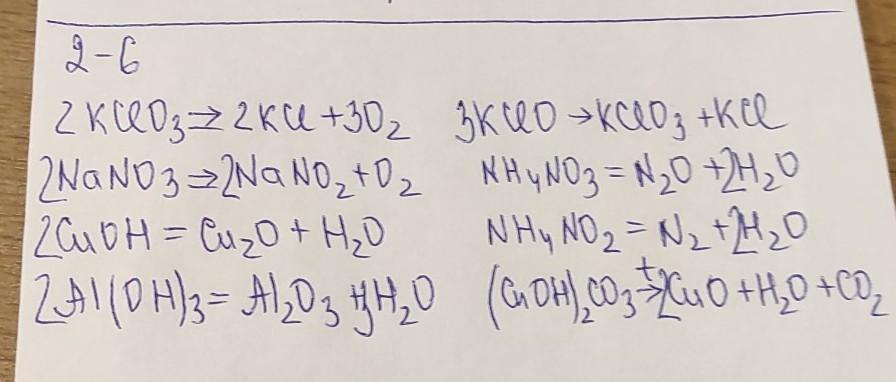 2-6
2KClO3 → 2KCl + 3O2 3KClO → KClO3 + KCl
2NaNO3 → 2NaNO2 + O2 NH4NO3 = N2O + 2H2O
2CuOH = Cu2O + H2O NH4NO2 = N2 + 2H2O
2Al(OH)3 = Al2O3 + 3H2O (CuOH)2CO3 t→ 2CuO + H2O + CO2